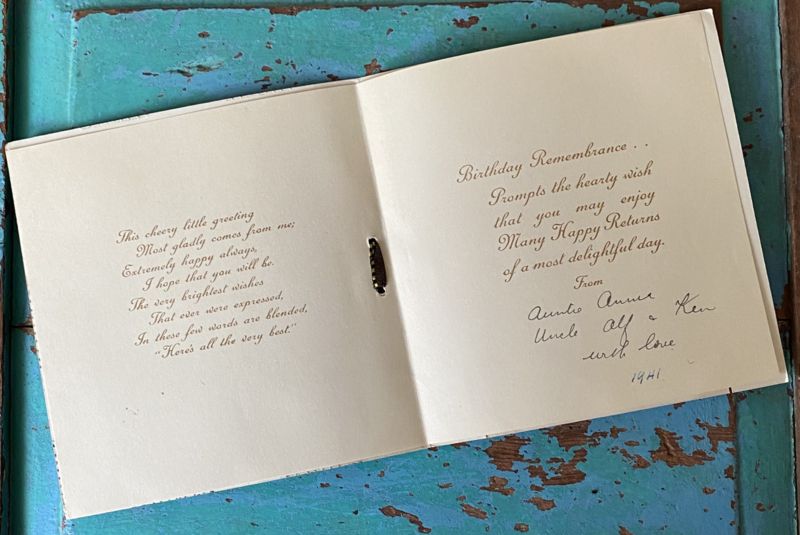 This cheery little greeting
Most gladly comes from me;
Extremely happy always,
I hope that you will be.
The very brightest wishes
That ever were expressed,
In these few words are blended,
"Here's all the very best."
Birthday Remembrance . .
Prompts the hearty wish
that you may enjoy
Many Happy Returns
of a most delightful day.
From
Auntie Annie
Uncle Alf & Ken
with love
1941